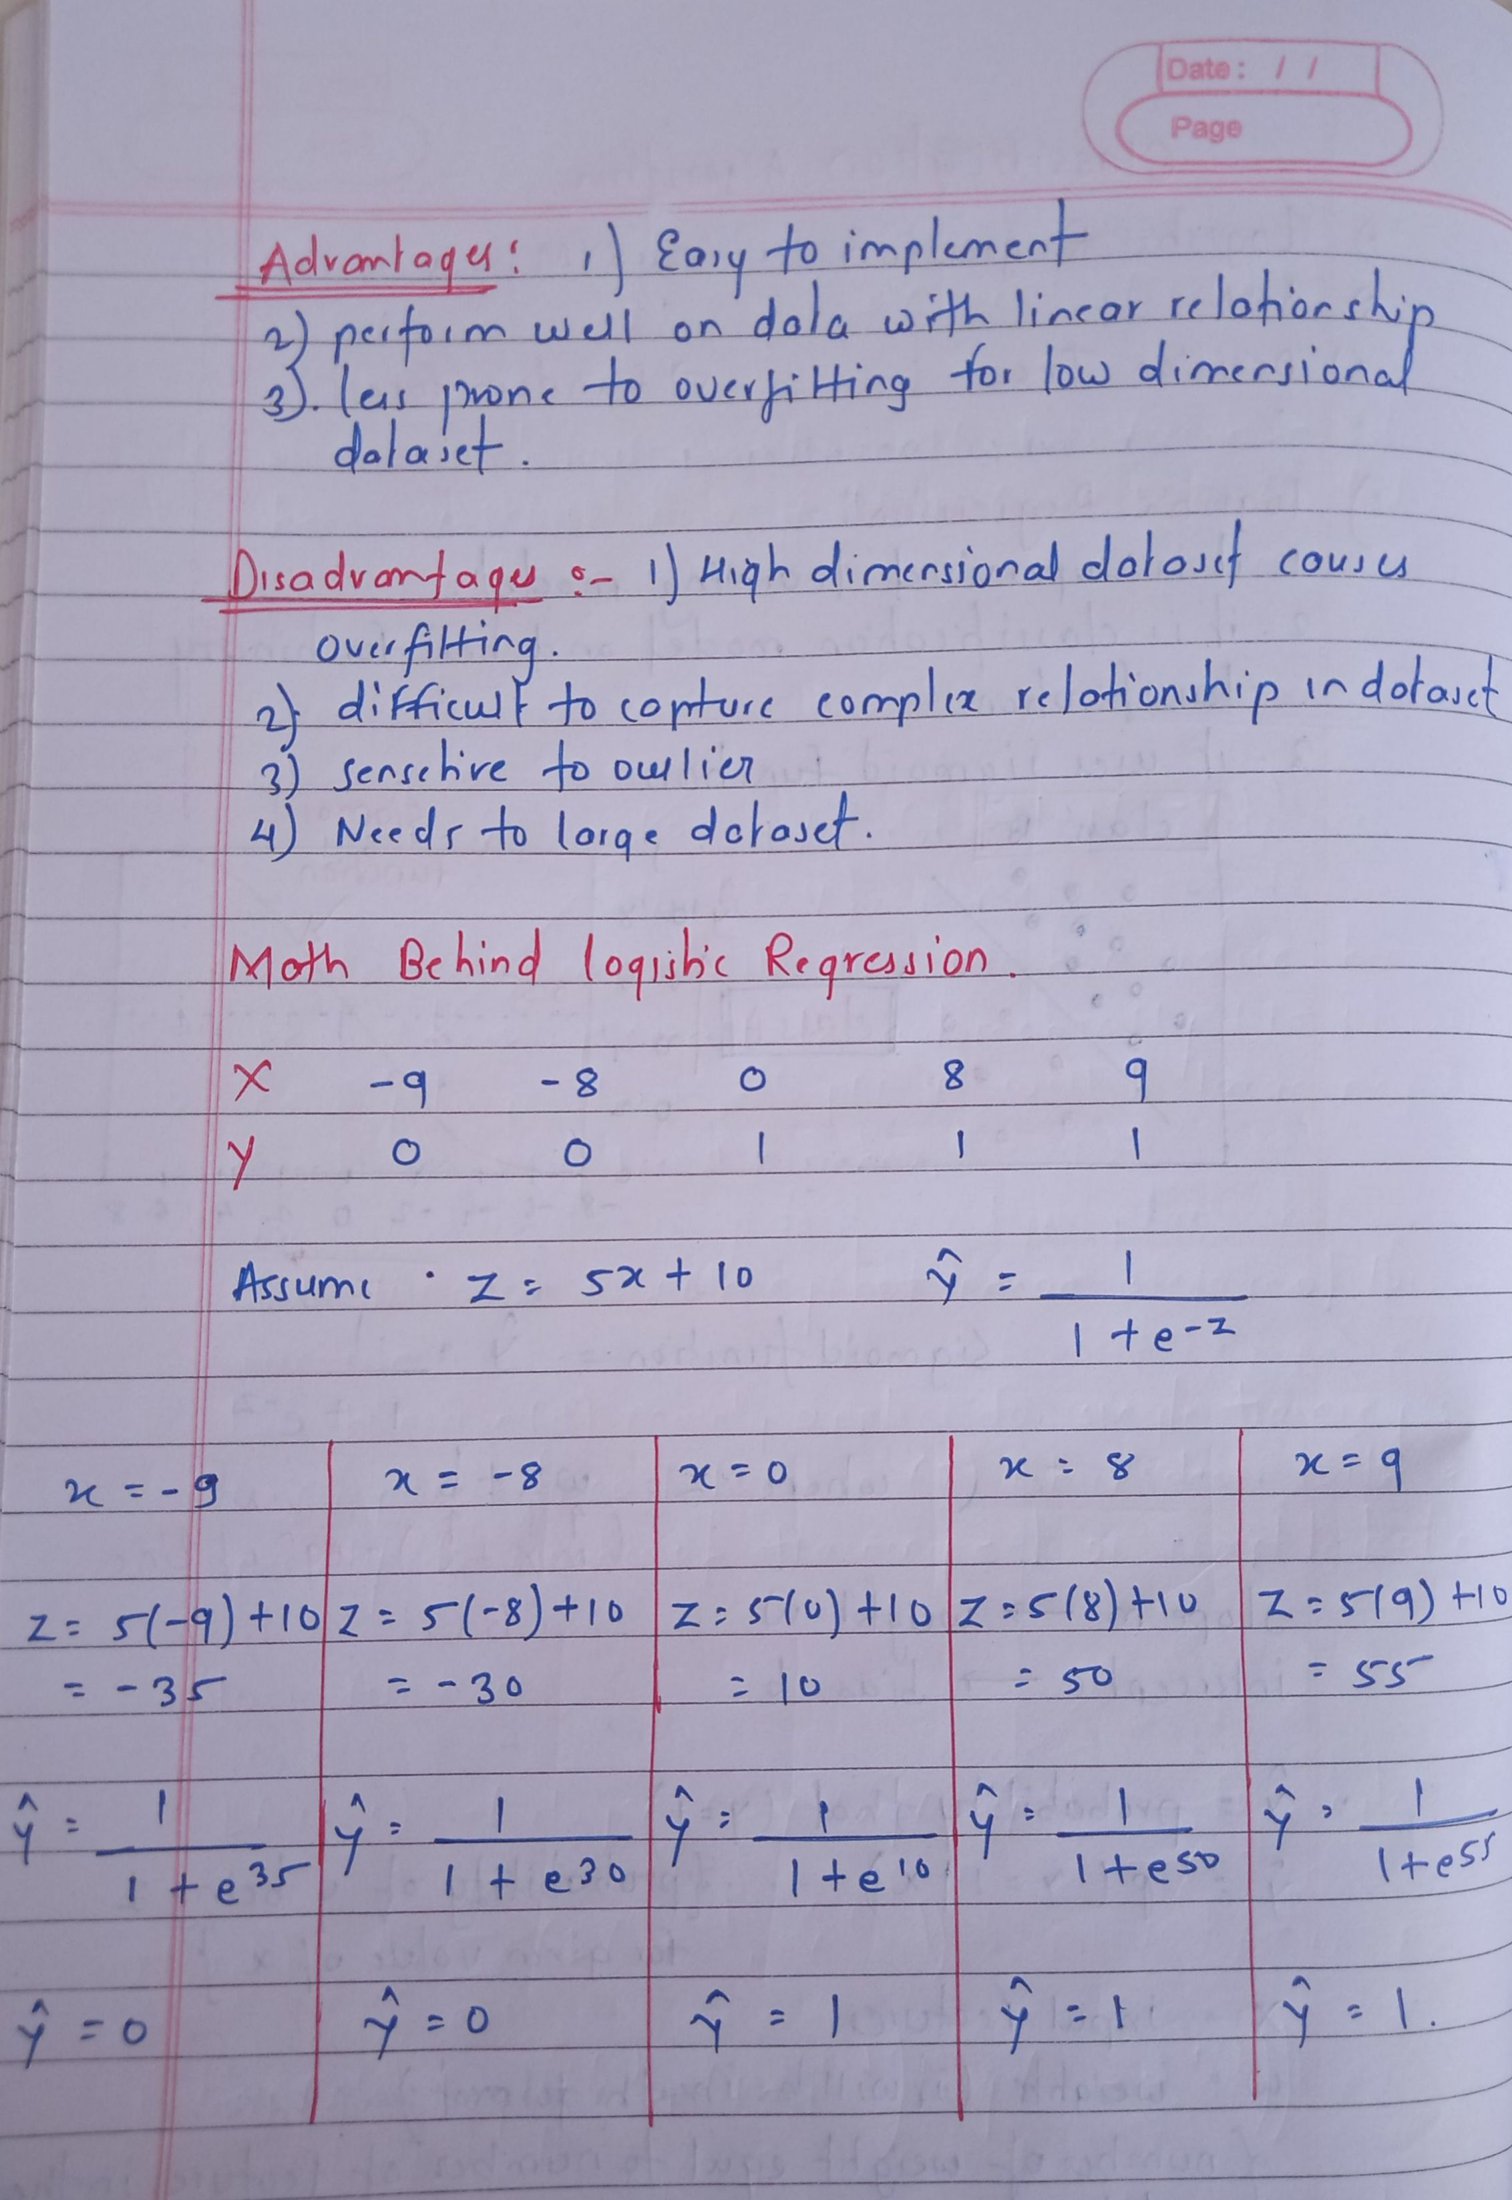 Date: / /
Page
Advantages: 1) Easy to implement
2) perform well on data with linear relationship
3). less prone to overfitting for low dimensional
dataset.
Disadvantages :- 1) High dimensional dataset causes
overfitting.
2) difficult to capture complex relationship in dataset
3) sensetive to outlier
4) Needs to large dataset.
Math Behind logistic Regression.
X -9 -8 0 8 9
Y 0 0 1 1 1
Assume . z = 5x + 10 ŷ = 1 / (1 + e^-z)
x = -9 | x = -8 | x = 0 | x = 8 | x = 9
z = 5(-9) + 10 | z = 5(-8) + 10 | z = 5(0) + 10 | z = 5(8) + 10 | z = 5(9) + 10
= -35 | = -30 | = 10 | = 50 | = 55
ŷ = 1 / (1 + e^35) | ŷ = 1 / (1 + e^30) | ŷ = 1 / (1 + e^10) | ŷ = 1 / (1 + e^50) | ŷ = 1 / (1 + e^55)
ŷ = 0 | ŷ = 0 | ŷ = 1 | ŷ = 1 | ŷ = 1.